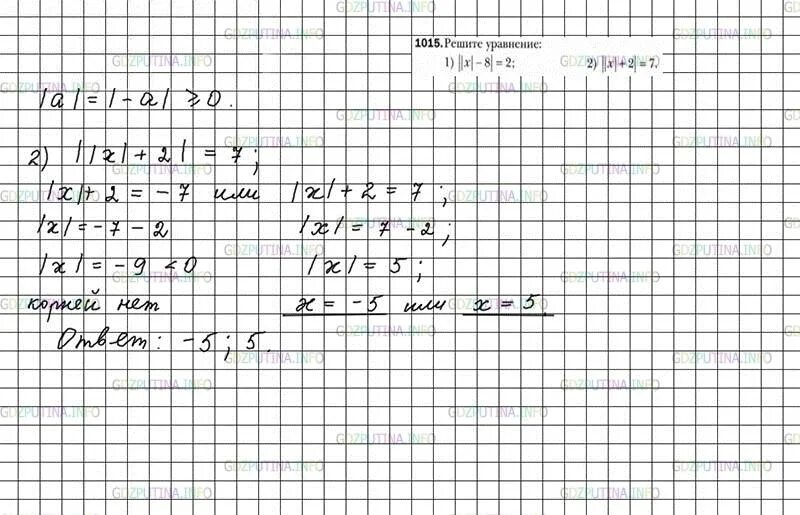 1015. Решите уравнение:
1) ||x| − 8| = 2; 2) ||x| + 2| = 7.
|a| = |−a| ⩾ 0.
2) ||x| + 2| = 7;
|x| + 2 = −7 или |x| + 2 = 7;
|x| = −7 − 2 |x| = 7 − 2;
|x| = −9 < 0 |x| = 5;
корней нет x = −5 или x = 5.
Ответ: −5; 5.
GDZPUTINA.INFO